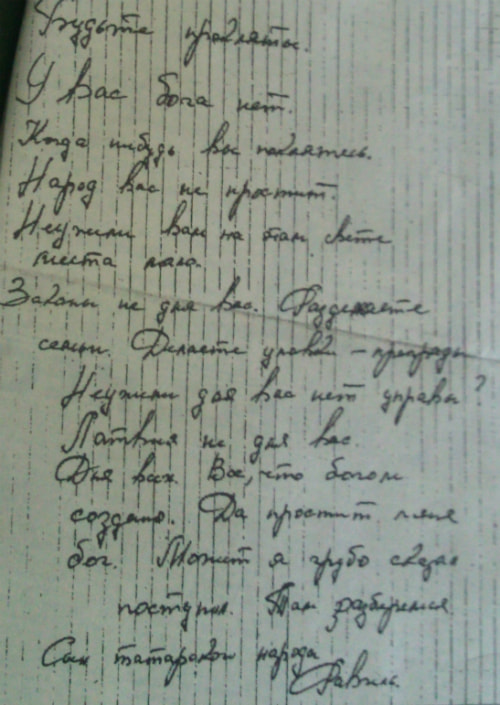 Будьте прокляты.
У вас бога нет.
Когда нибудь вы покаятесь.
Народ вас не простит.
Неужили вам на этом свете
места мало.
Законы не для вас. Разделяете
семьи. Делаете уловки – преграды
Неужили для вас нет управы?
Латвия не для вас.
Для всех. Все, что богом
создано. Да простит меня
бог. Можит я грубо сказал
поступил. Там разберемся
Сын татарского народа
Равиль.